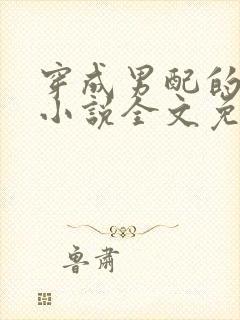 穿成男配的
小说全文免
鲁肃